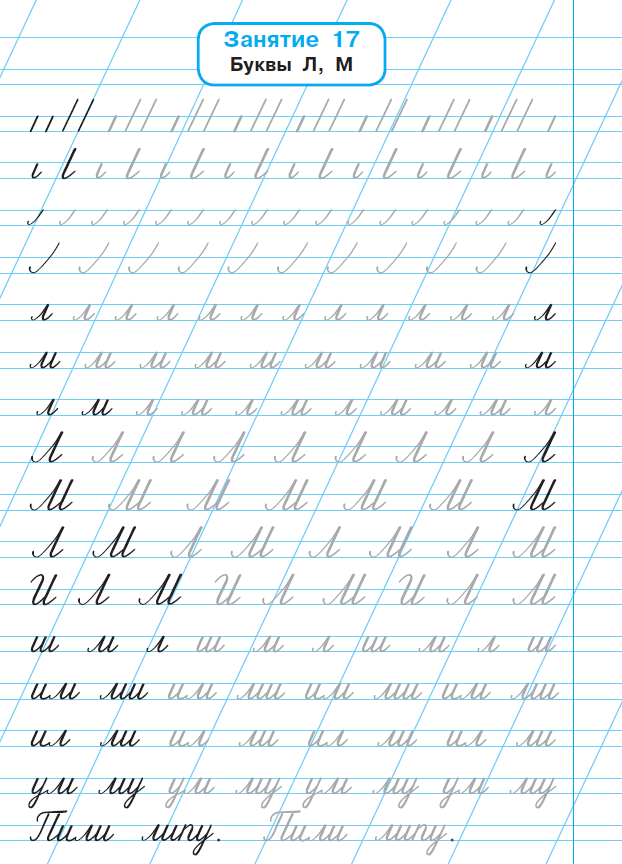 Занятие 17
Буквы Л, М
л л л л л л л л л л л л л
м м м м м м м м м м
л м л м л м л м л м л
Л Л Л Л Л Л Л Л Л
М М М М М М М
Л М Л М Л М Л М
И Л М И Л М И Л М
ш м л ш м л ш м л ш
им ми им ми им ми им ми
ил ли ил ли ил ли ил ли
ум му ум му ум му ум му
Пили липу. Пили липу.